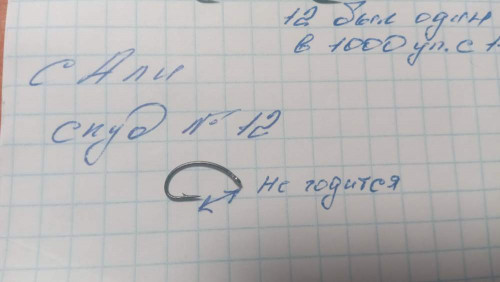 12 был один
в 1000 уп. с 1
с Али
скуд № 12
Не годится